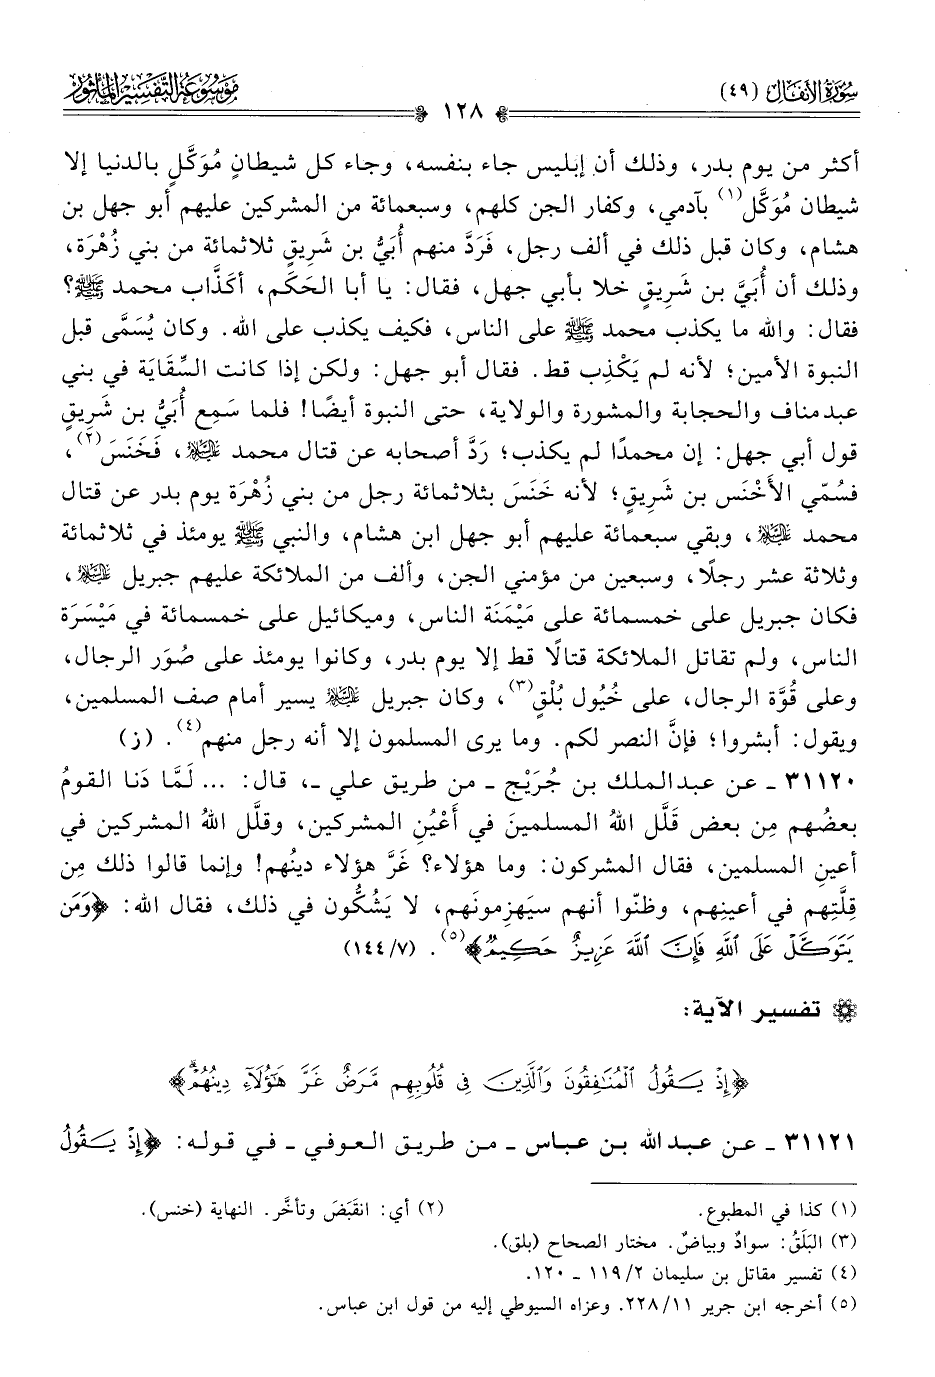 سُورَةُ الأَنفَال (٤٩)
١٢٨
مَوْسُوعَة التَّفْسِيرِ المَأْثُور
أكثر من يوم بدر، وذلك أن إبليس جاء بنفسه، وجاء كل شيطانٍ مُوَكَّلٍ بالدنيا إلا
شيطان مُوَكَّل(١) بآدمي، وكفار الجن كلهم، وسبعمائة من المشركين عليهم أبو جهل بن
هشام، وكان قبل ذلك في ألف رجل، فَرَدَّ منهم أُبَيُّ بن شَرِيقٍ ثلاثمائة من بني زُهْرَة،
وذلك أن أُبَيَّ بن شَرِيقٍ خلا بأبي جهل، فقال: يا أبا الحَكَم، أكذَّاب محمد ﷺ؟
فقال: والله ما يكذب محمد ﷺ على الناس، فكيف يكذب على الله. وكان يُسَمَّى قبل
النبوة الأمين؛ لأنه لم يَكْذِب قط. فقال أبو جهل: ولكن إذا كانت السِّقَاية في بني
عبدمناف والحجابة والمشورة والولاية، حتى النبوة أيضًا! فلما سَمِع أُبَيُّ بن شَرِيقٍ
قول أبي جهل: إن محمدًا لم يكذب؛ رَدَّ أصحابه عن قتال محمد عليه السلام، فَخَنَسَ(٢)،
فسُمّي الأَخْنَس بن شَرِيقٍ؛ لأنه خَنَسَ بثلاثمائة رجل من بني زُهْرَة يوم بدر عن قتال
محمد عليه السلام، وبقي سبعمائة عليهم أبو جهل ابن هشام، والنبي ﷺ يومئذ في ثلاثمائة
وثلاثة عشر رجلًا، وسبعين من مؤمني الجن، وألف من الملائكة عليهم جبريل عليه السلام،
فكان جبريل على خمسمائة على مَيْمَنَة الناس، وميكائيل على خمسمائة في مَيْسَرَة
الناس، ولم تقاتل الملائكة قتالًا قط إلا يوم بدر، وكانوا يومئذ على صُوَر الرجال،
وعلى قُوَّة الرجال، على خُيُول بُلْقٍ(٣)، وكان جبريل عليه السلام يسير أمام صف المسلمين،
ويقول: أبشروا؛ فإنَّ النصر لكم. وما يرى المسلمون إلا أنه رجل منهم(٤). (ز)
٣١١٢٠ ـ عن عبدالملك بن جُرَيْج ـ من طريق علي ـ، قال: ... لَمَّا دَنا القومُ
بعضُهم مِن بعض قَلَّل اللهُ المسلمينَ في أعْيُنِ المشركين، وقلَّل اللهُ المشركين في
أعينِ المسلمين، فقال المشركون: وما هؤلاء؟ غَرَّ هؤلاء دينُهم! وإنما قالوا ذلك مِن
قِلَّتِهم في أعينِهم، وظنّوا أنهم سيَهزِمونَهم، لا يَشُكُّون في ذلك، فقال الله: ﴿وَمَن
يَتَوَكَّلْ عَلَى ٱللَّهِ فَإِنَّ ٱللَّهَ عَزِيزٌ حَكِيمٌ﴾(٥). (٧/١٤٤)
تفسير الآية:
﴿إِذْ يَقُولُ ٱلْمُنَٰفِقُونَ وَٱلَّذِينَ فِى قُلُوبِهِم مَّرَضٌ غَرَّ هَٰٓؤُلَآءِ دِينُهُمْ﴾
٣١١٢١ ـ عن عبدالله بن عباس ـ من طريق العوفي ـ في قوله: ﴿إِذْ يَقُولُ
(١) كذا في المطبوع.	(٢) أي: انقَبَضَ وتأخَّر. النهاية (خنس).
(٣) البَلَقُ: سوادٌ وبياضٌ. مختار الصحاح (بلق).
(٤) تفسير مقاتل بن سليمان ٢/١١٩ ـ ١٢٠.
(٥) أخرجه ابن جرير ١١/٢٢٨. وعزاه السيوطي إليه من قول ابن عباس.